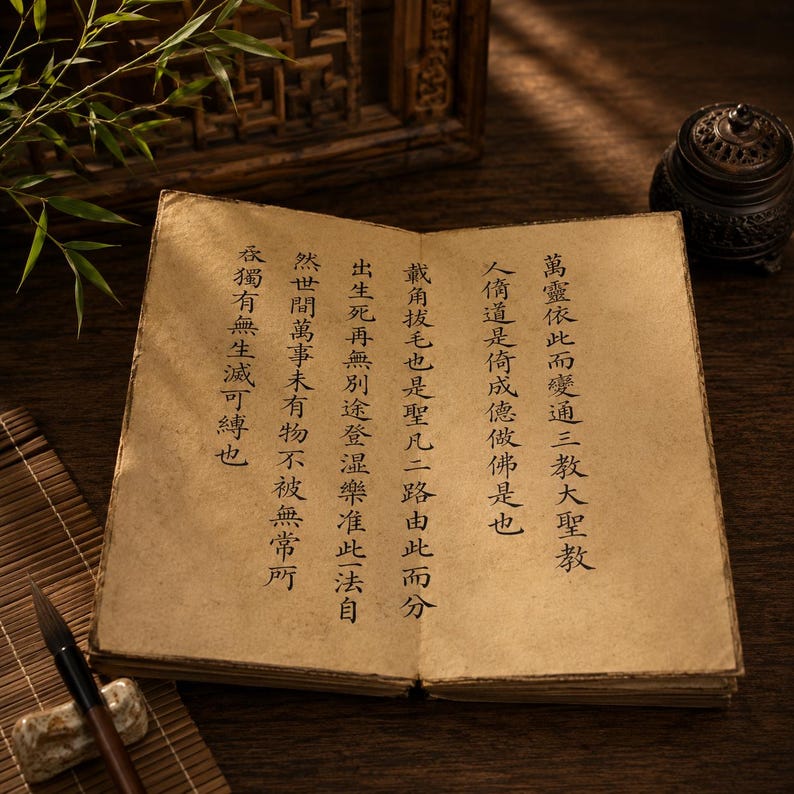 萬靈依此而變通三教大聖教
人脩道是倚成德做佛是也
戴角拔毛也是聖凡二路由此而分
出生死再無別途登湿樂准此一法自
然世間萬事未有物不被無常所
吞獨有無生滅可縛也